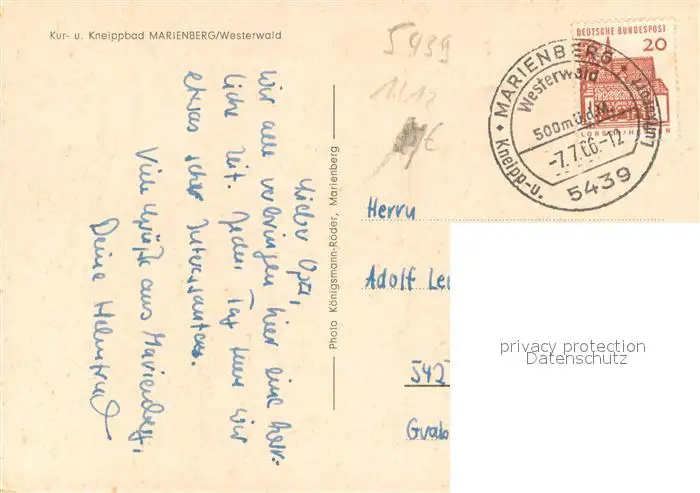 Kur- u. Kneippbad MARIENBERG/Westerwald
Lieber Opa,
wir alle verbringen hier eine herr-
liche Zeit. Jeden Tag tun wir
etwas sehr Interessantes.
Viele Grüße aus Marienberg,
Deine
Photo Königsmann-Röder, Marienberg
5439
DEUTSCHE BUNDESPOST
20
LORSCH/HESSEN
MARIENBERG
Westerwald
500m ü.d.M.
-7.7.66.-12
Kneipp-u.
Luftkurort
5439
Herrn
Adolf
542
privacy protection
Datenschutz